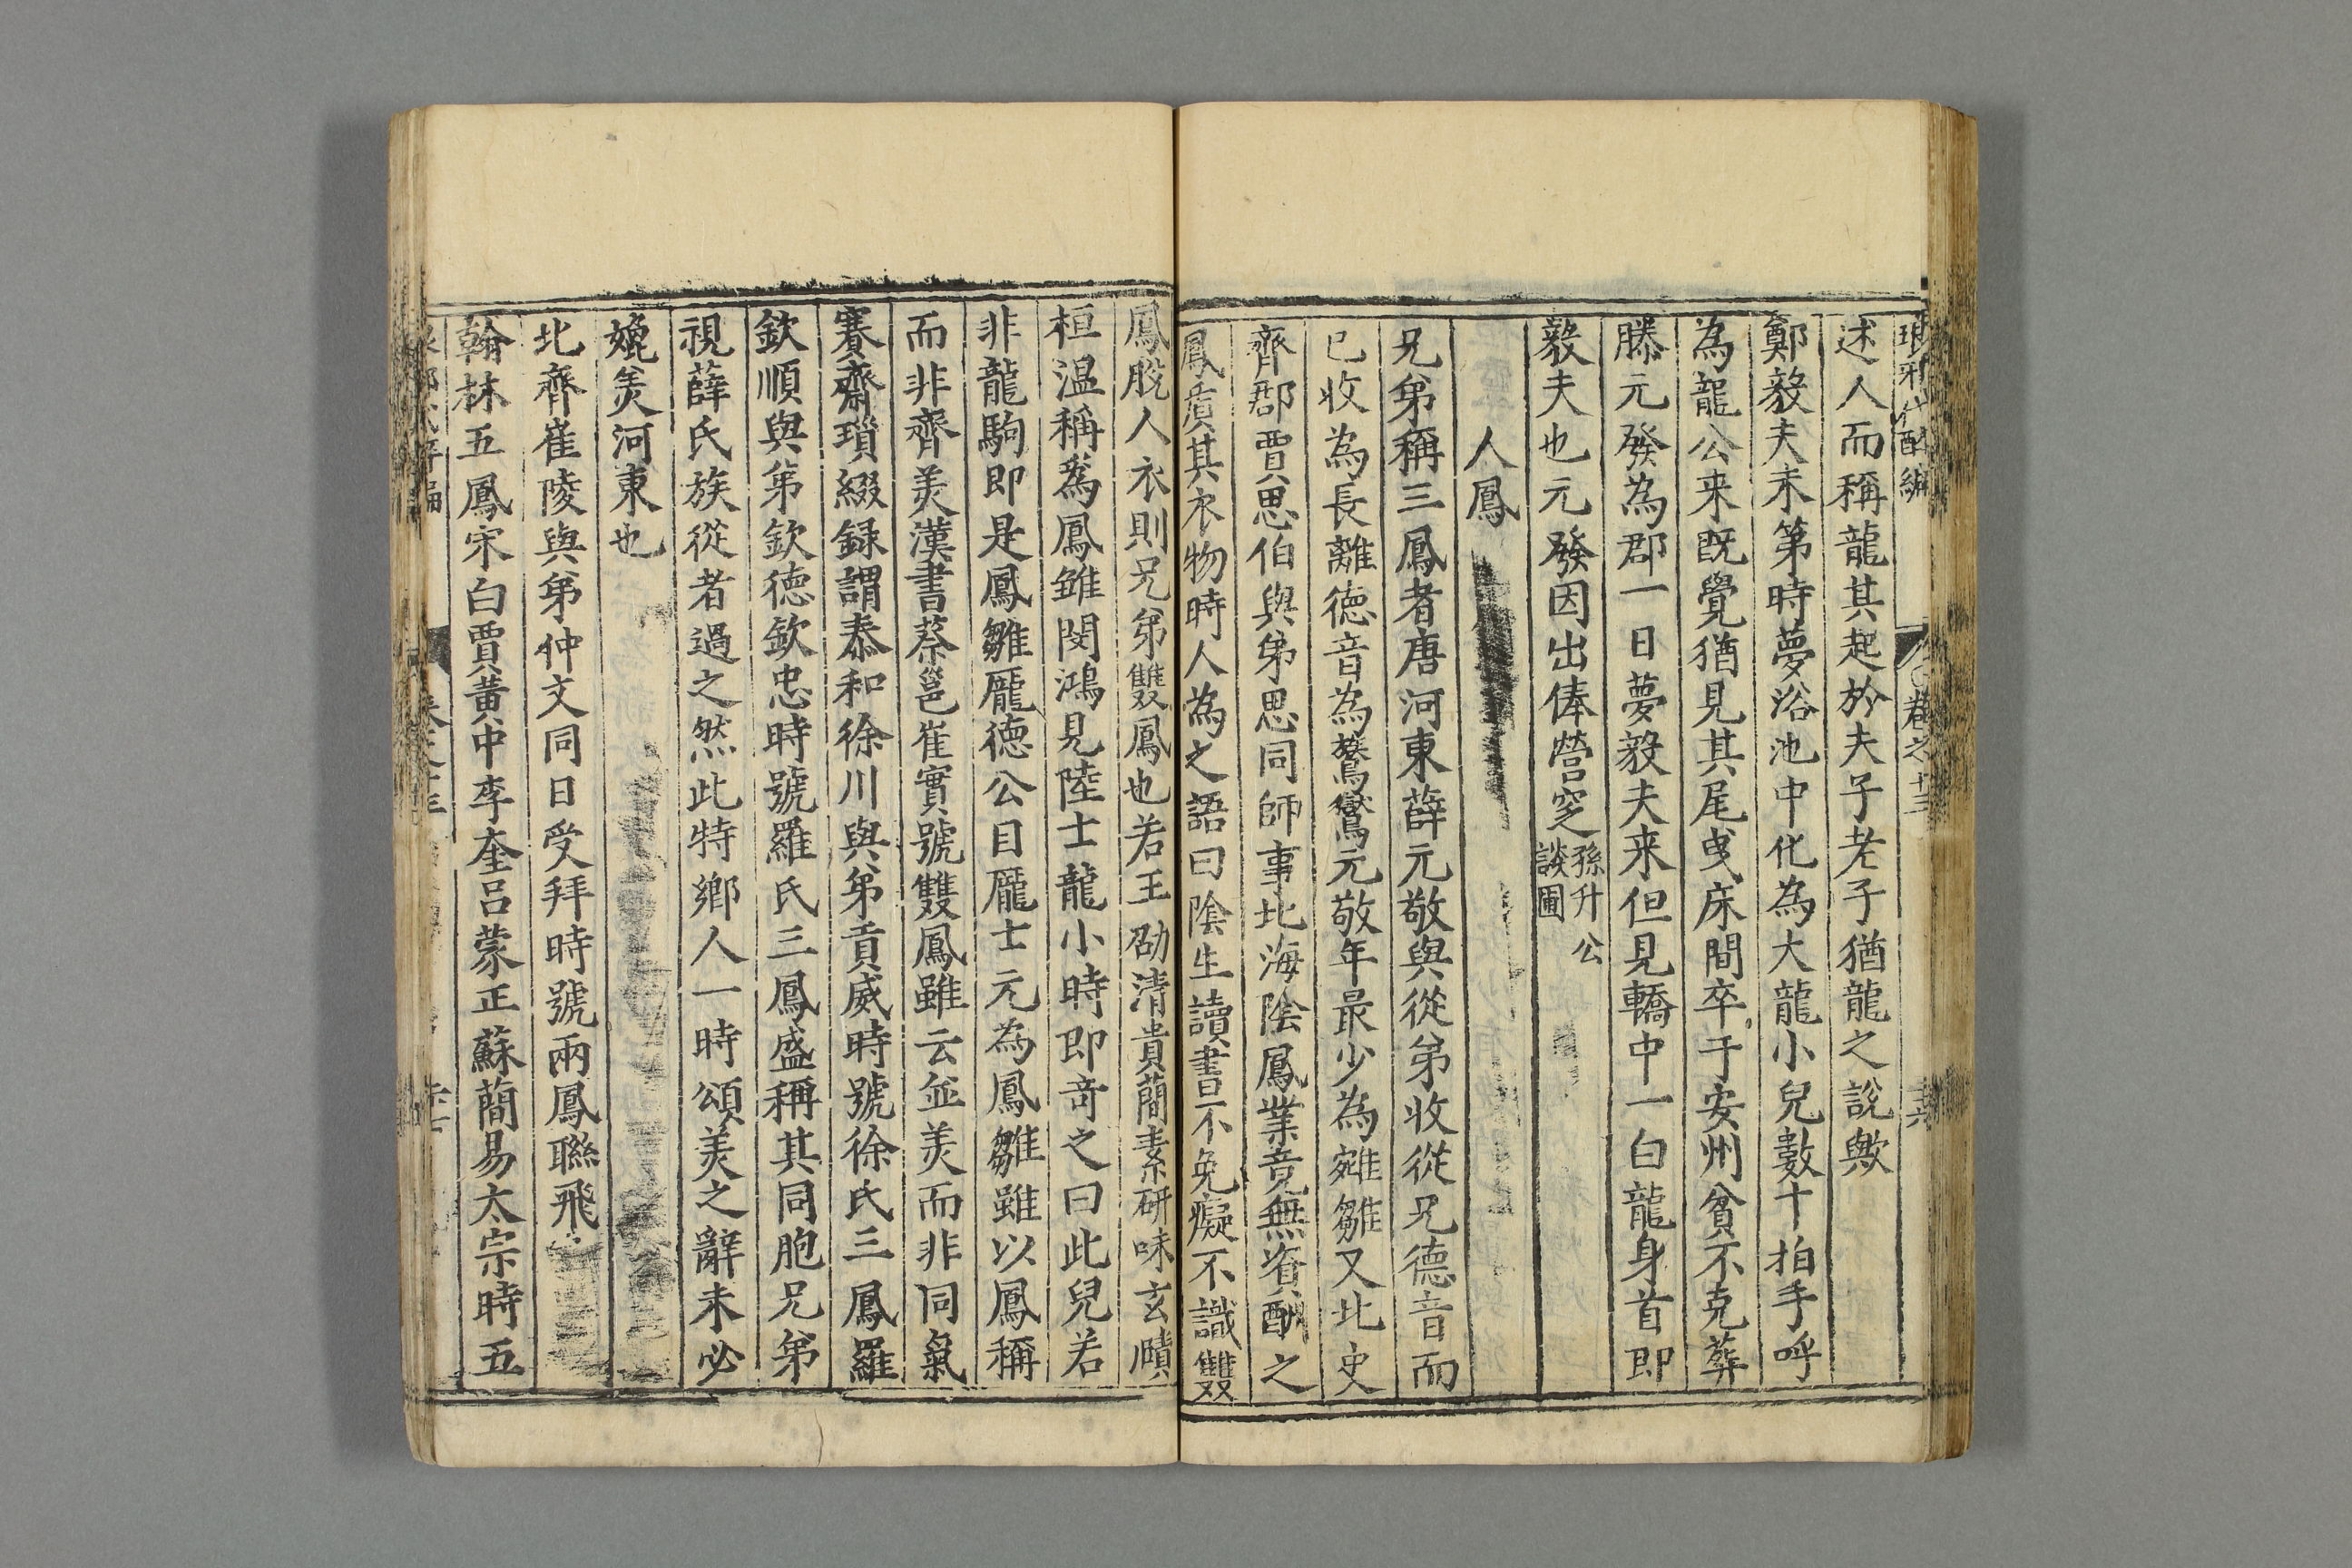 述人而稱龍其起於夫子老子猶龍之說歟
鄭毅夫未第時夢浴池中化為大龍小兒數十拍手呼
為龍公来既覺猶見其尾曵床間卒于安州貧不克葬
滕元發為郡一日夢毅夫来但見轎中一白龍身首即
毅夫也元發因出俸營窆孫升公談圃
人鳳
兄弟稱三鳳者唐河東薛元敬與從弟收從兄德音而
已收為長離德音為鸑鷟元敬年最少為䧹雛又北史
齊郡賈思伯與弟思同師事北海陰鳳業竟無資酬之
鳳質其衣物時人為之語曰陰生讀書不免癡不識雙
鳳脫人衣則兄弟雙鳳也若王劭清貴簡素研味玄賾
桓温稱為鳳雛閔鴻見陸士龍小時即奇之曰此兒若
非龍駒即是鳳雛龐德公目龐士元為鳳雛雖以鳳稱
而非齊美漢書蔡邕崔實號雙鳳雖云並美而非同氣
賽齋瑣綴録謂泰和徐川與弟貢威時號徐氏三鳳羅
欽順與弟欽德欽忠時號羅氏三鳳盛稱其同胞兄弟
視薛氏族從者過之然此特鄉人一時頌美之辭未必
媲美河東也
北齊崔陵與弟仲文同日受拜時號兩鳳聯飛
翰林五鳳宋白賈黃中李奎呂蒙正蘇簡易太宗時五